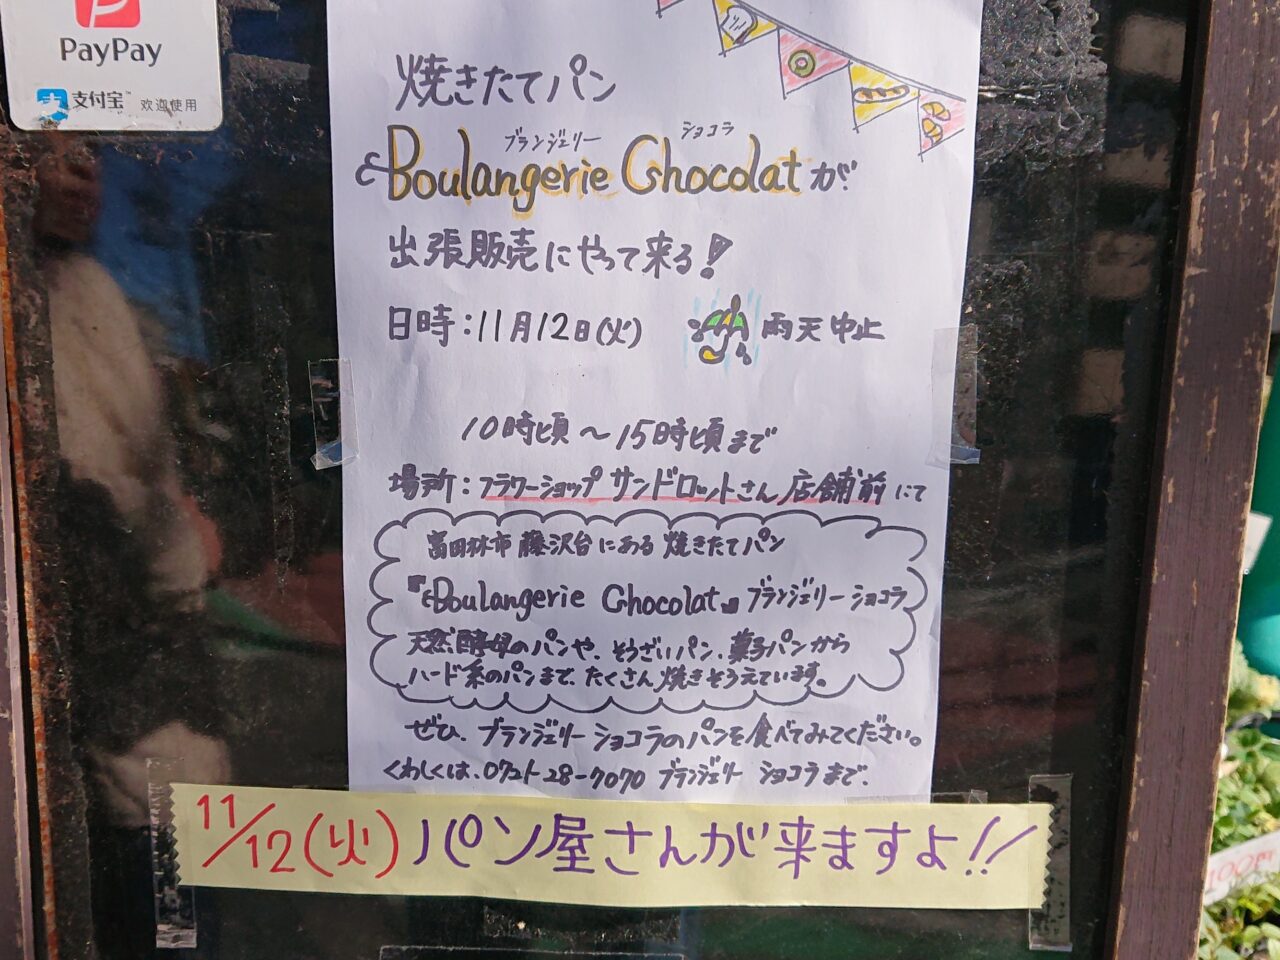 PayPay
支付宝™ 欢迎使用
焼きたてパン
ブランジェリー ショコラ
Boulangerie Chocolatが
出張販売にやって来る!
日時:11月12日(火) 雨天中止
10時頃〜15時頃まで
場所:フラワーショップ サンドロットさん店舗前にて
富田林市藤沢台にある焼きたてパン
『Boulangerie Chocolat』ブランジェリーショコラ
天然酵母のパンや、そうざいパン、菓子パンから
ハード系のパンまで、たくさん焼きそろえています。
ぜひ、ブランジェリーショコラのパンを食べてみてください。
くわしくは、0721-28-7070 ブランジェリー ショコラまで。
11/12(火)パン屋さんが来ますよ!!